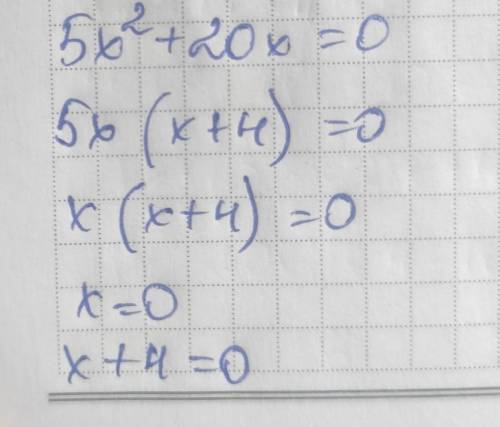 5x²+20x=0
5x(x+4)=0
x(x+4)=0
x=0
x+4=0